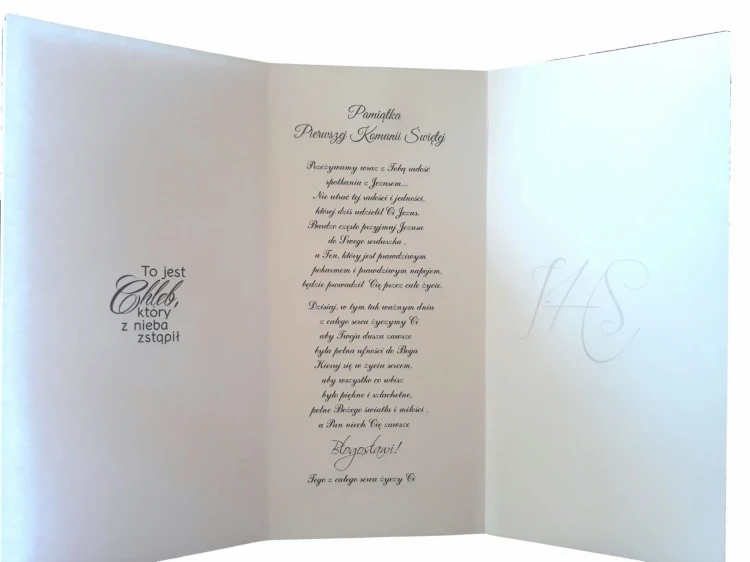 To jest
Chleb,
który
z nieba
zstąpił
Pamiątka
Pierwszej Komunii Świętej
Przeżywamy wraz z Tobą radość
spotkania z Jezusem...
Nie utrać tej radości i jedności,
której dziś udzielił Ci Jezus.
Bardzo często przyjmuj Jezusa
do Swego serduszka ,
a Ten, który jest prawdziwym
pokarmem i prawdziwym napojem,
będzie prowadził Cię przez całe życie.
Dzisiaj, w tym tak ważnym dniu
z całego serca życzymy Ci
aby Twoja dusza zawsze
była pełna ufności do Boga
Kieruj się w życiu sercem,
aby wszystko co robisz
było piękne i szlachetne,
pełne Bożego światła i miłości ,
a Pan niech Cię zawsze
Błogosławi!
Tego z całego serca życzy Ci
IHS